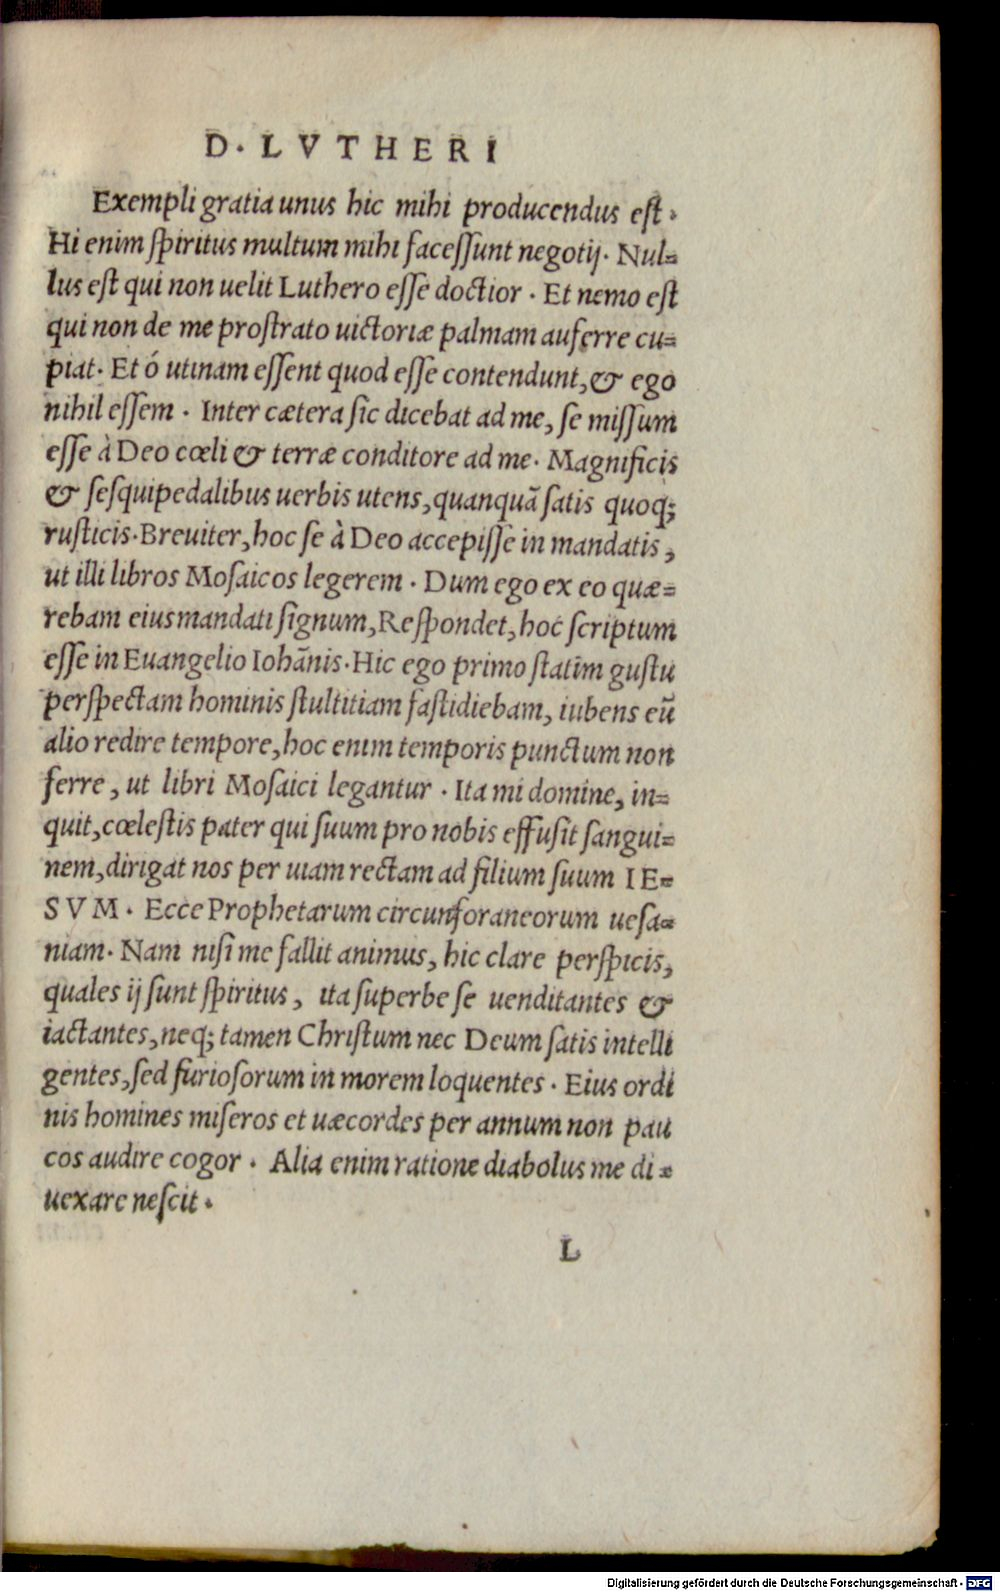 D. LVTHERI
Exempli gratia unus hic mihi producendus est.
Hi enim spiritus multum mihi facessunt negotij. Nul=
lus est qui non uelit Luthero esse doctior. Et nemo est
qui non de me prostrato uictoriæ palmam auferre cu=
piat. Et ó utinam essent quod esse contendunt, & ego
nihil essem. Inter cætera sic dicebat ad me, se missum
esse à Deo cœli & terræ conditore ad me. Magnificis
& sesquipedalibus uerbis utens, quanquã satis quoq;
rusticis. Breuiter, hoc se à Deo accepisse in mandatis,
ut illi libros Mosaicos legerem. Dum ego ex eo quæ=
rebam eius mandati signum, Respondet, hoc scriptum
esse in Euangelio Iohãnis. Hic ego primo statim gustu
perspectam hominis stultitiam fastidiebam, iubens eũ
alio redire tempore, hoc enim temporis punctum non
ferre, ut libri Mosaici legantur. Ita mi domine, in=
quit, cœlestis pater qui suum pro nobis effusit sangui=
nem, dirigat nos per uiam rectam ad filium suum IE=
SVM. Ecce Prophetarum circunforaneorum uesa=
niam. Nam nisi me fallit animus, hic clare perspicis,
quales ij sunt spiritus, ita superbe se uenditantes &
iactantes, neq; tamen Christum nec Deum satis intelli
gentes, sed furiosorum in morem loquentes. Eius ordi
nis homines miseros et uæcordes per annum non pau
cos audire cogor. Alia enim ratione diabolus me di=
uexare nescit.
L
Digitalisierung gefördert durch die Deutsche Forschungsgemeinschaft - DFG